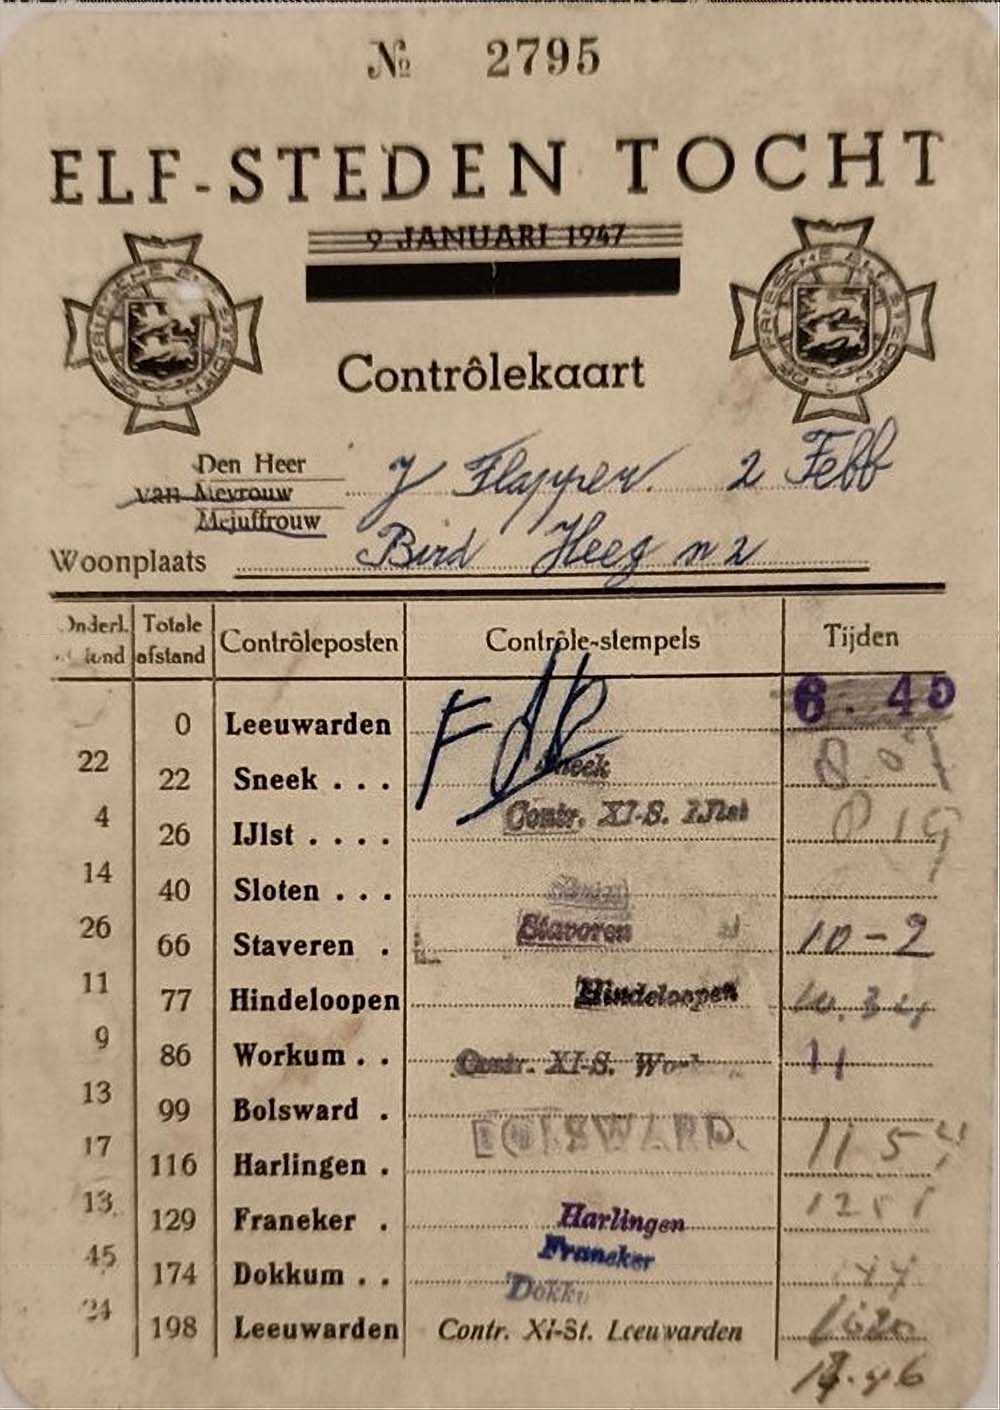 № 2795
ELF-STEDEN TOCHT
9 JANUARI 1947
Contrôlekaart
Den Heer
van Mevrouw
Mejuffrouw
J Flapper. 2 Febb
Woonplaats Heeg n 2
Onderl. Totale Contrôleposten Contrôle-stempels Tijden
afstand
0 Leeuwarden 6.45
22 22 Sneek . . . 8.07
4 26 IJlst . . . . Contr. XI-S. IJlst 8 19
14 40 Sloten . . .
26 66 Staveren . Stavoren 10-2
11 77 Hindeloopen Hindeloopen 10.34
9 86 Workum . . Contr. XI-S. 11
13 99 Bolsward . BOLSWARD.
17 116 Harlingen . 11 54
13 129 Franeker . Harlingen
45 174 Dokkum . . Franeker
24 198 Leeuwarden Contr. XI-St. Leeuwarden